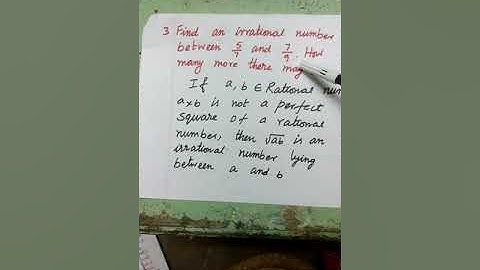 3 Find an irrational number
between 5/7 and 7/9. How
many more there may
If a, b ∈ Rational num
a×b is not a perfect
square of a rational
number, then √ab is an
irrational number lying
between a and b